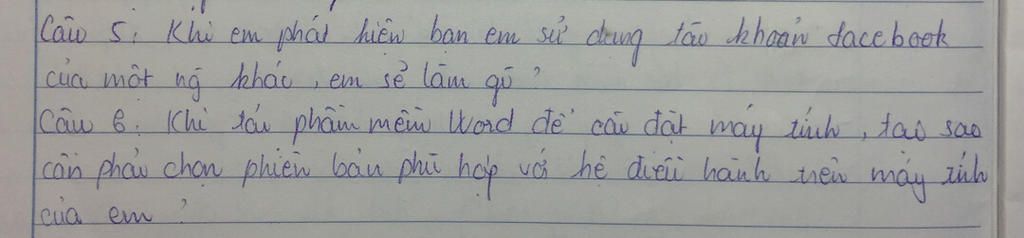 Câu 5: Khi em phát hiện bạn em sử dụng tào khoản facebook
của một ng khác, em sẽ làm gì?
Câu 6: Khi tải phần mềm Word để cài đặt máy tính, tạo sao
cần phải chọn phiên bản phù hợp với hệ điều hành trên máy tính
của em?